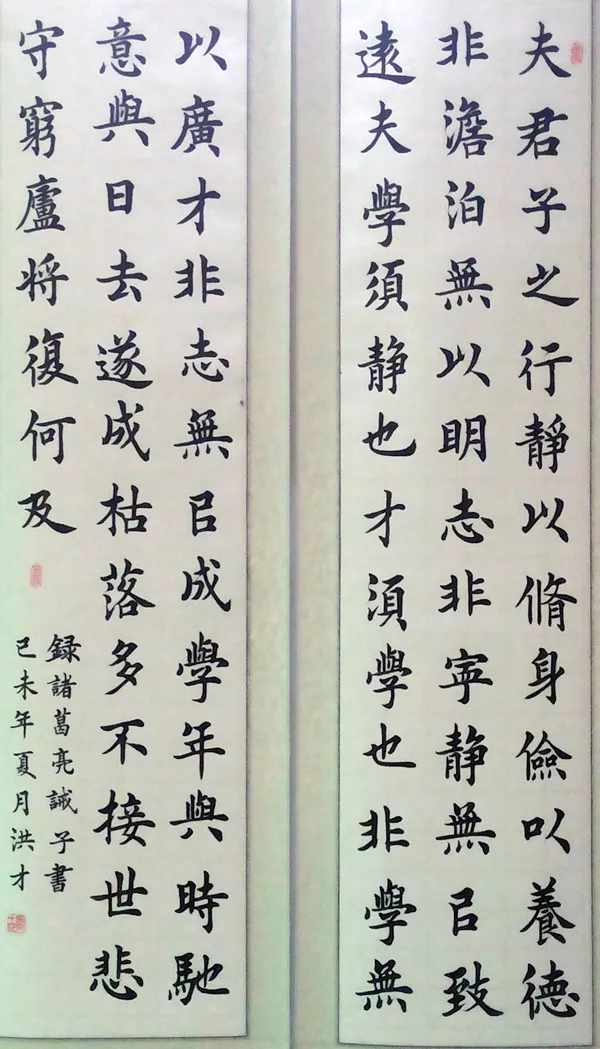 夫君子之行靜以脩身儉㕥養德
非澹泊無以明志非寧静無㠯致
遠夫學須静也才須學也非學無
以廣才非志無㠯成學年與時馳
意與日去遂成枯落多不接世悲
守窮廬将復何及
録諸葛亮誡子書
己未年夏月洪才